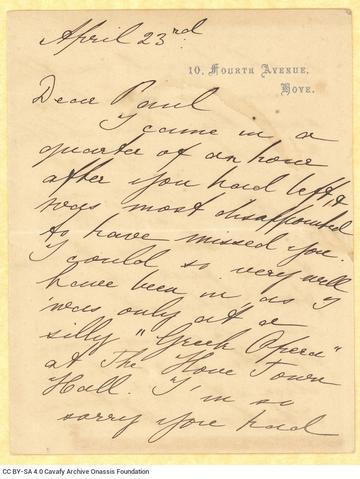 April 23rd
10, Fourth Avenue,
Hove.
Dear Paul
I came in a
quarter of an hour
after you had left, &
was most disappointed
to have missed you.
I could so very well
have been in, as I
was only at a
silly "Greek Opera"
at The Hove Town
Hall. I'm so
sorry you had
CC BY-SA 4.0 Cavafy Archive Onassis Foundation